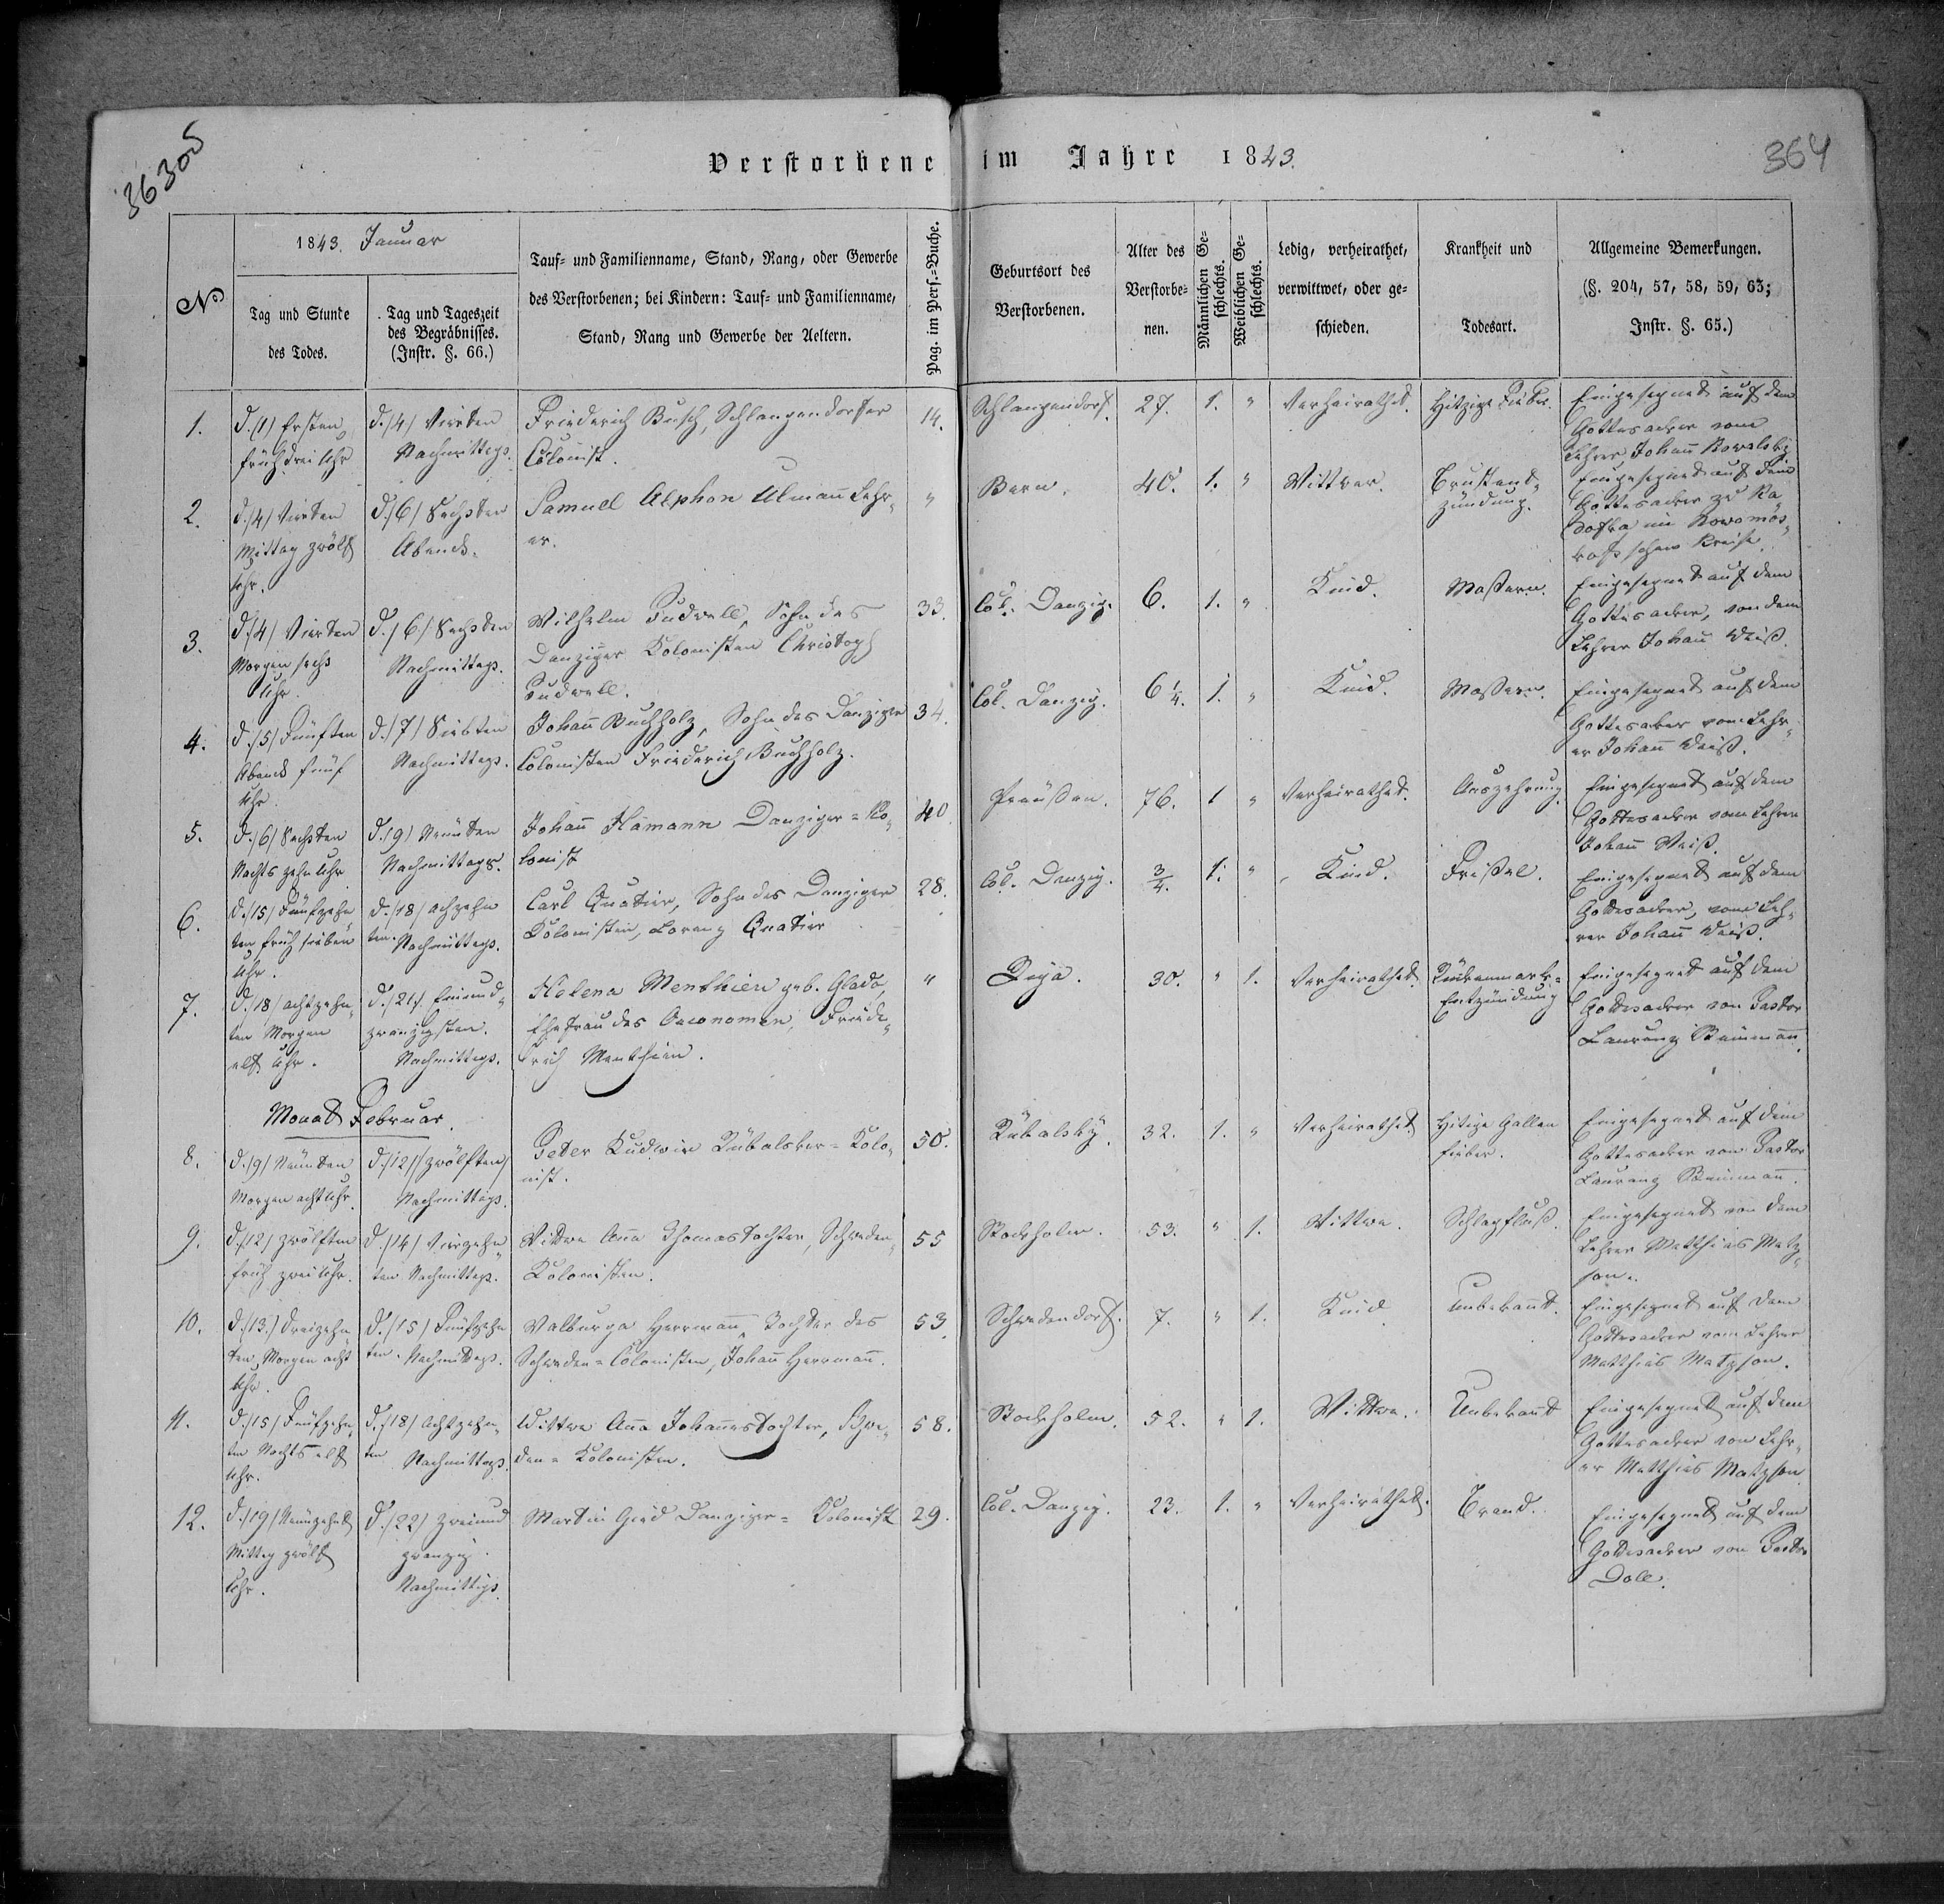 36305
364
Verstorbene im Jahre 1843.
No
1843. Januar
Tag und Stunde
des Todes.
Tag und Tageszeit
des Begräbnisses.
(Instr. §. 66.)
Tauf= und Familienname, Stand, Rang, oder Gewerbe
des Verstorbenen; bei Kindern: Tauf= und Familienname,
Stand, Rang und Gewerbe der Aeltern.
Pag. im Pers.=Buche.
Geburtsort des
Verstorbenen.
Alter des
Verstorbe=
nen.
Männlichen Ge=
schlechts.
Weiblichen Ge=
schlechts.
Ledig, verheirathet,
verwittwet, oder ge=
schieden.
Krankheit und
Todesart.
Allgemeine Bemerkungen.
(§. 204, 57, 58, 59, 63;
Instr. §. 65.)
1.
d. /1/ Ersten
früh drei Uhr
d. /4/ Vierten
Nachmittags.
Friederich Busch, Schlangendorfer
Colonist.
14.
Schlangendorf.
27.
1.
"
Verheirathet.
Hitzige Fieber.
Eingesegnet auf dem
Gottesacker vom
Lehrer Johañ Kowalsky
2.
d. /4/ Vierten
Mittag zwölf
Uhr.
d. /6/ Sechsten
Abends.
Samuel Alphon Ulmañ Lehr„
er.
"
Bern.
40.
1.
"
Wittwer.
Brustent„
zündung.
Eingesegnet auf dem
Gottesacker zu
im
schen Kreise.
3.
d. /4/ Vierten
Morgen sechs
Uhr.
d. /6/ Sechsten
Nachmittags.
Wilhelm Sudwell, Sohn des
Danziger Kolonisten Christoph
Sudwell.
33.
Col. Danzig.
6.
1.
"
Kind.
Massern.
Eingesegnet auf dem
Gottesacker, von dem
Lehrer Johañ Weiß.
4.
d. /5/ Fünften
Abends fünf
Uhr.
d. /7/ Siebten
Nachmittags.
Johañ Buchholz, Sohn des Danziger
Colonisten Friederich Buchholz.
34.
Col. Danzig.
6 1/4.
1.
"
Kind.
Massern.
Eingesegnet auf dem
Gottesacker vom Lehr„
er Johañ Weiß.
5.
d. /6/ Sechsten
Nachts zehn Uhr
d. /9/ Neunten
Nachmittags.
Johañ Hamann Danziger = Ko„
lonist
40
Preußen.
76.
1
"
Verheirathet.
Auszehrung
Eingesegnet auf dem
Gottesacker vom Lehrer
Johañ Weiß.
6.
d. /15/ Fünfzehn
ten früh sieben
Uhr.
d. /18/ achzehn
ten. Nachmittags.
Carl Quatier, Sohn des Danziger
Kolonisten, Lorenz Quatier
28.
Col. Danzig.
3/4.
1.
"
Kind.
Frießel.
Eingesegnet auf dem
Gottesacker, vom Leh„
rer Johañ Weiß.
7.
d. /18/ achtzehn„
ten Morgen
elf Uhr.
d. /21/ Einund„
zwanzigsten.
Nachmittags.
Helena Menthien geb. Glado,
Ehefrau des Oeconomen, Friede„
rich Menthien.
"
Riga.
30.
"
1.
Verheirathet.
Rückenmark=
Entzündung
Eingesegnet auf dem
Gottesacker von Pastor
Laurenz
Monat Februar.
8.
d. /9/ Neunten
Morgen acht Uhr.
d. /12/ zwölften
Nachmittags.
Peter Ludwin Rübalsker = Kolo„
nist.
50.
Rübalsky.
32.
1.
"
Verheirathet
Hitzige Gallen
fieber.
Eingesegnet auf dem
Gottesacker von Pastor
Laurenz
9.
d. /12/ zwölften
früh zwei Uhr.
d. /14/ Vierzehn„
ten Nachmittags.
Wittwe Aña Thomastochter, Schweden„
Kolonisten.
55
Stockholm.
53.
"
1.
Wittwe.
Schlagfluß.
Eingesegnet von dem
Lehrer Matthias Matz„
son.
10.
d. /13./ Dreizehn„
ten Morgen acht
Uhr.
d. /15/ Fünfzehn
ten. Nachmittags.
Walburga Herrmañ, Tochter des
Schweden = Colonisten, Johañ Herrmañ.
53.
Schwedendorf.
7.
"
1.
Kind
Unbekañt.
Eingesegnet auf dem
Gottesacker vom Lehrer
Matthias Matzson.
11.
d. /15/ Fünfzehn„
ten Nachts elf
Uhr.
d. /18/ Achtzehn„
ten Nachmittags.
Wittwe Aña Johañestochter, Schwe„
den = Kolonisten.
58.
Stockholm.
52.
"
1.
Wittwe.
Unbekañt
Eingesegnet auf dem
Gottesacker von Lehr„
er Matthias Matzson
12.
d. /19/ Neunzehnt
Mittag zwölf
Uhr.
d. /22/ Zweiund
zwanzig.
Nachmittags.
Martin Danziger = Kolonist
29.
Col. Danzig.
23.
1.
"
Verheirathet.
Brand.
Eingesegnet auf dem
Gottesacker von Pastor
Doll.